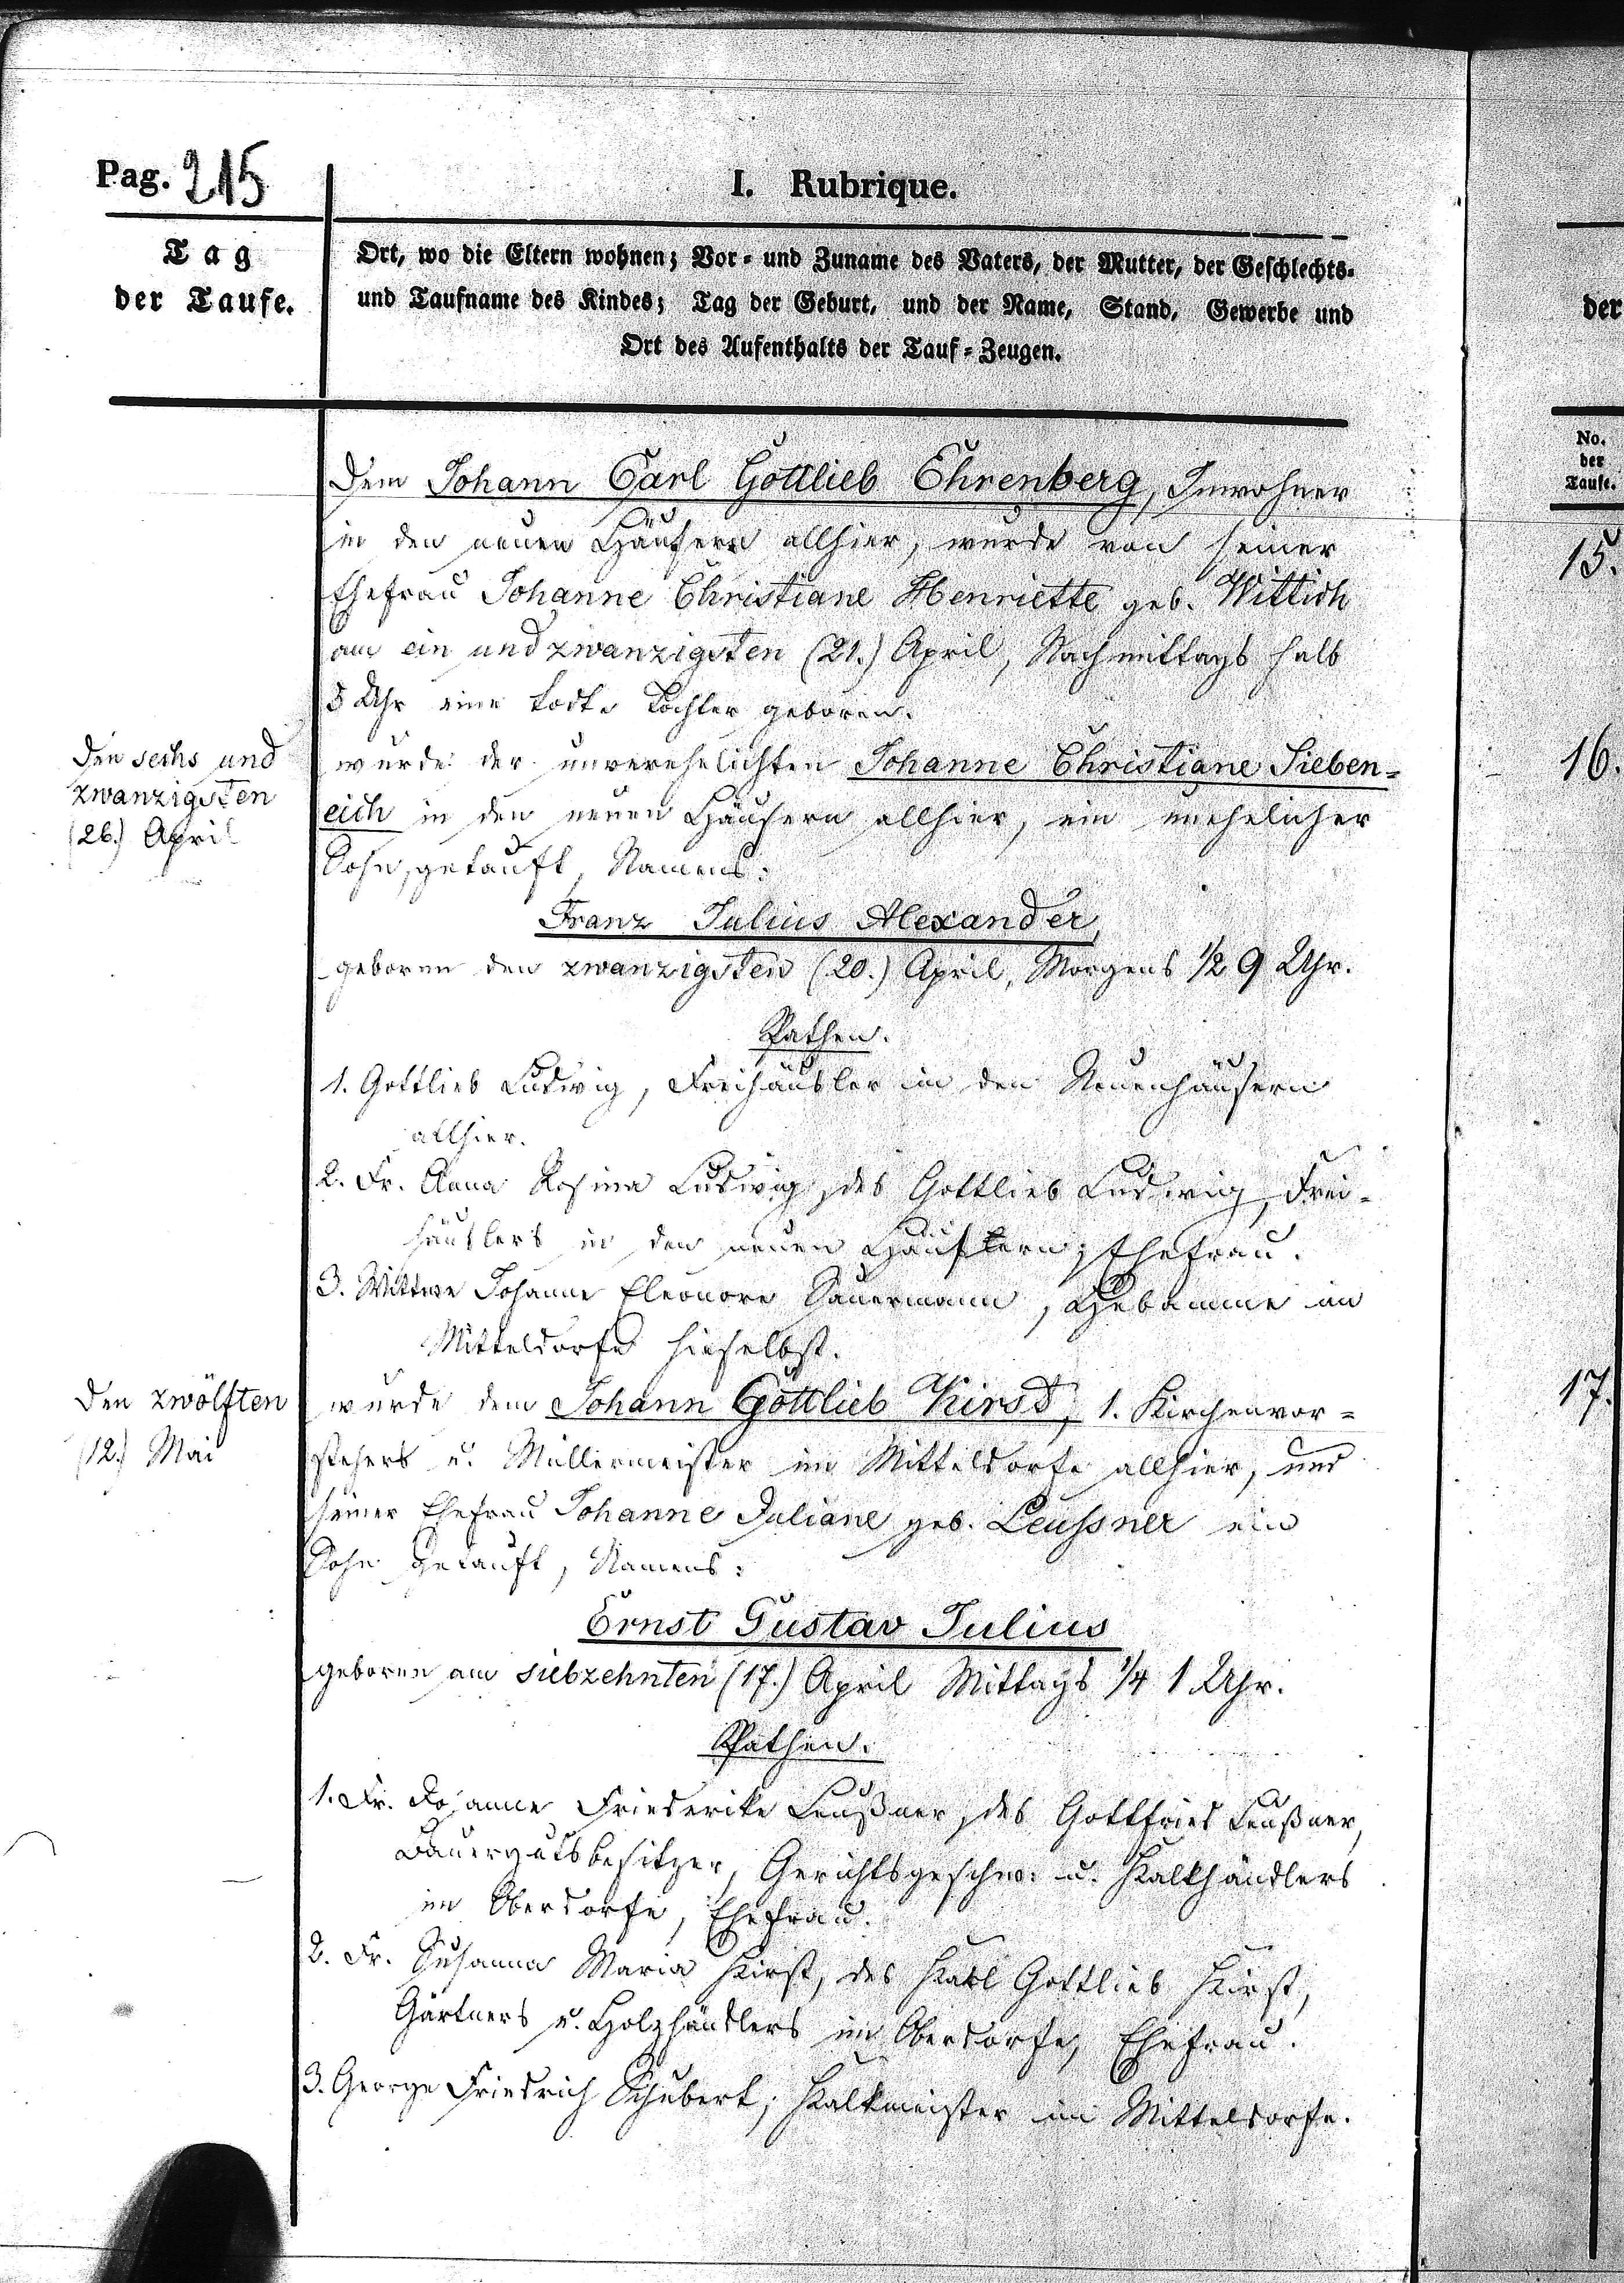 Pag. 215
I. Rubrique.
Tag
der Taufe.
Ort, wo die Eltern wohnen; Vor- und Zuname des Vaters, der Mutter, der Geschlechts-
und Taufname des Kindes; Tag der Geburt, und der Name, Stand, Gewerbe und
Ort des Aufenthalts der Tauf-Zeugen.
der
No.
der
Taufe.
Dem Johann Carl Gottlieb Ehrenberg, Inwohner
in den neuen Häusern allhier, wurde von seiner
15.
Ehefrau Johanne Christiane Henriette geb. Wittich
am ein und zwanzigsten (21.) April, Nachmittags halb
5 Uhr eine todte Tochter geboren.
Den sechs und
zwanzigsten
(26.) April
wurde der unverehelichten Johanne Christiane Sieben-
16.
eich in den neuen Häusern allhier, ein unehelicher
Sohn, getauft, Namens:
Franz Julius Alexander,
geboren den zwanzigsten (20.) April, Morgens 1/2 9 Uhr.
Pathen.
1. Gottlieb Ludwig, Freihäusler in den Neuenhäusern
allhier.
2. Fr. Anna Rosina Ludwig, des Gottlieb Ludwig, Frei-
häuslers in den neuen Häusern, Ehefrau.
3. Wittwe Johanne Eleonore Sauermann, Hebamme im
Mitteldorfe hieselbst.
Den zwölften
(12.) Mai
wurde dem Johann Gottlieb Kirst, 1. Kirchenvor-
17.
stehers u. Müllermeister im Mitteldorfe allhier, und
seiner Ehefrau Johanne Juliane geb. Leussner ein
Sohn getauft, Namens:
Ernst Gustav Julius
geboren am siebzehnten (17.) April Mittags 1/4 1 Uhr.
Pathen.
1. Fr. Johanne Friederike Leußner, des Gottfried Leußner,
Bauergutsbesitzer, Gerichtsgeschw. u. Kalkhändlers
im Oberdorfe, Ehefrau.
2. Fr. Susanna Maria Kirst, des Karl Gottlieb Kirst,
Gärtners u. Holzhändlers im Oberdorfe, Ehefrau.
3. George Friedrich Schubert, Kalkmeister im Mitteldorfe.